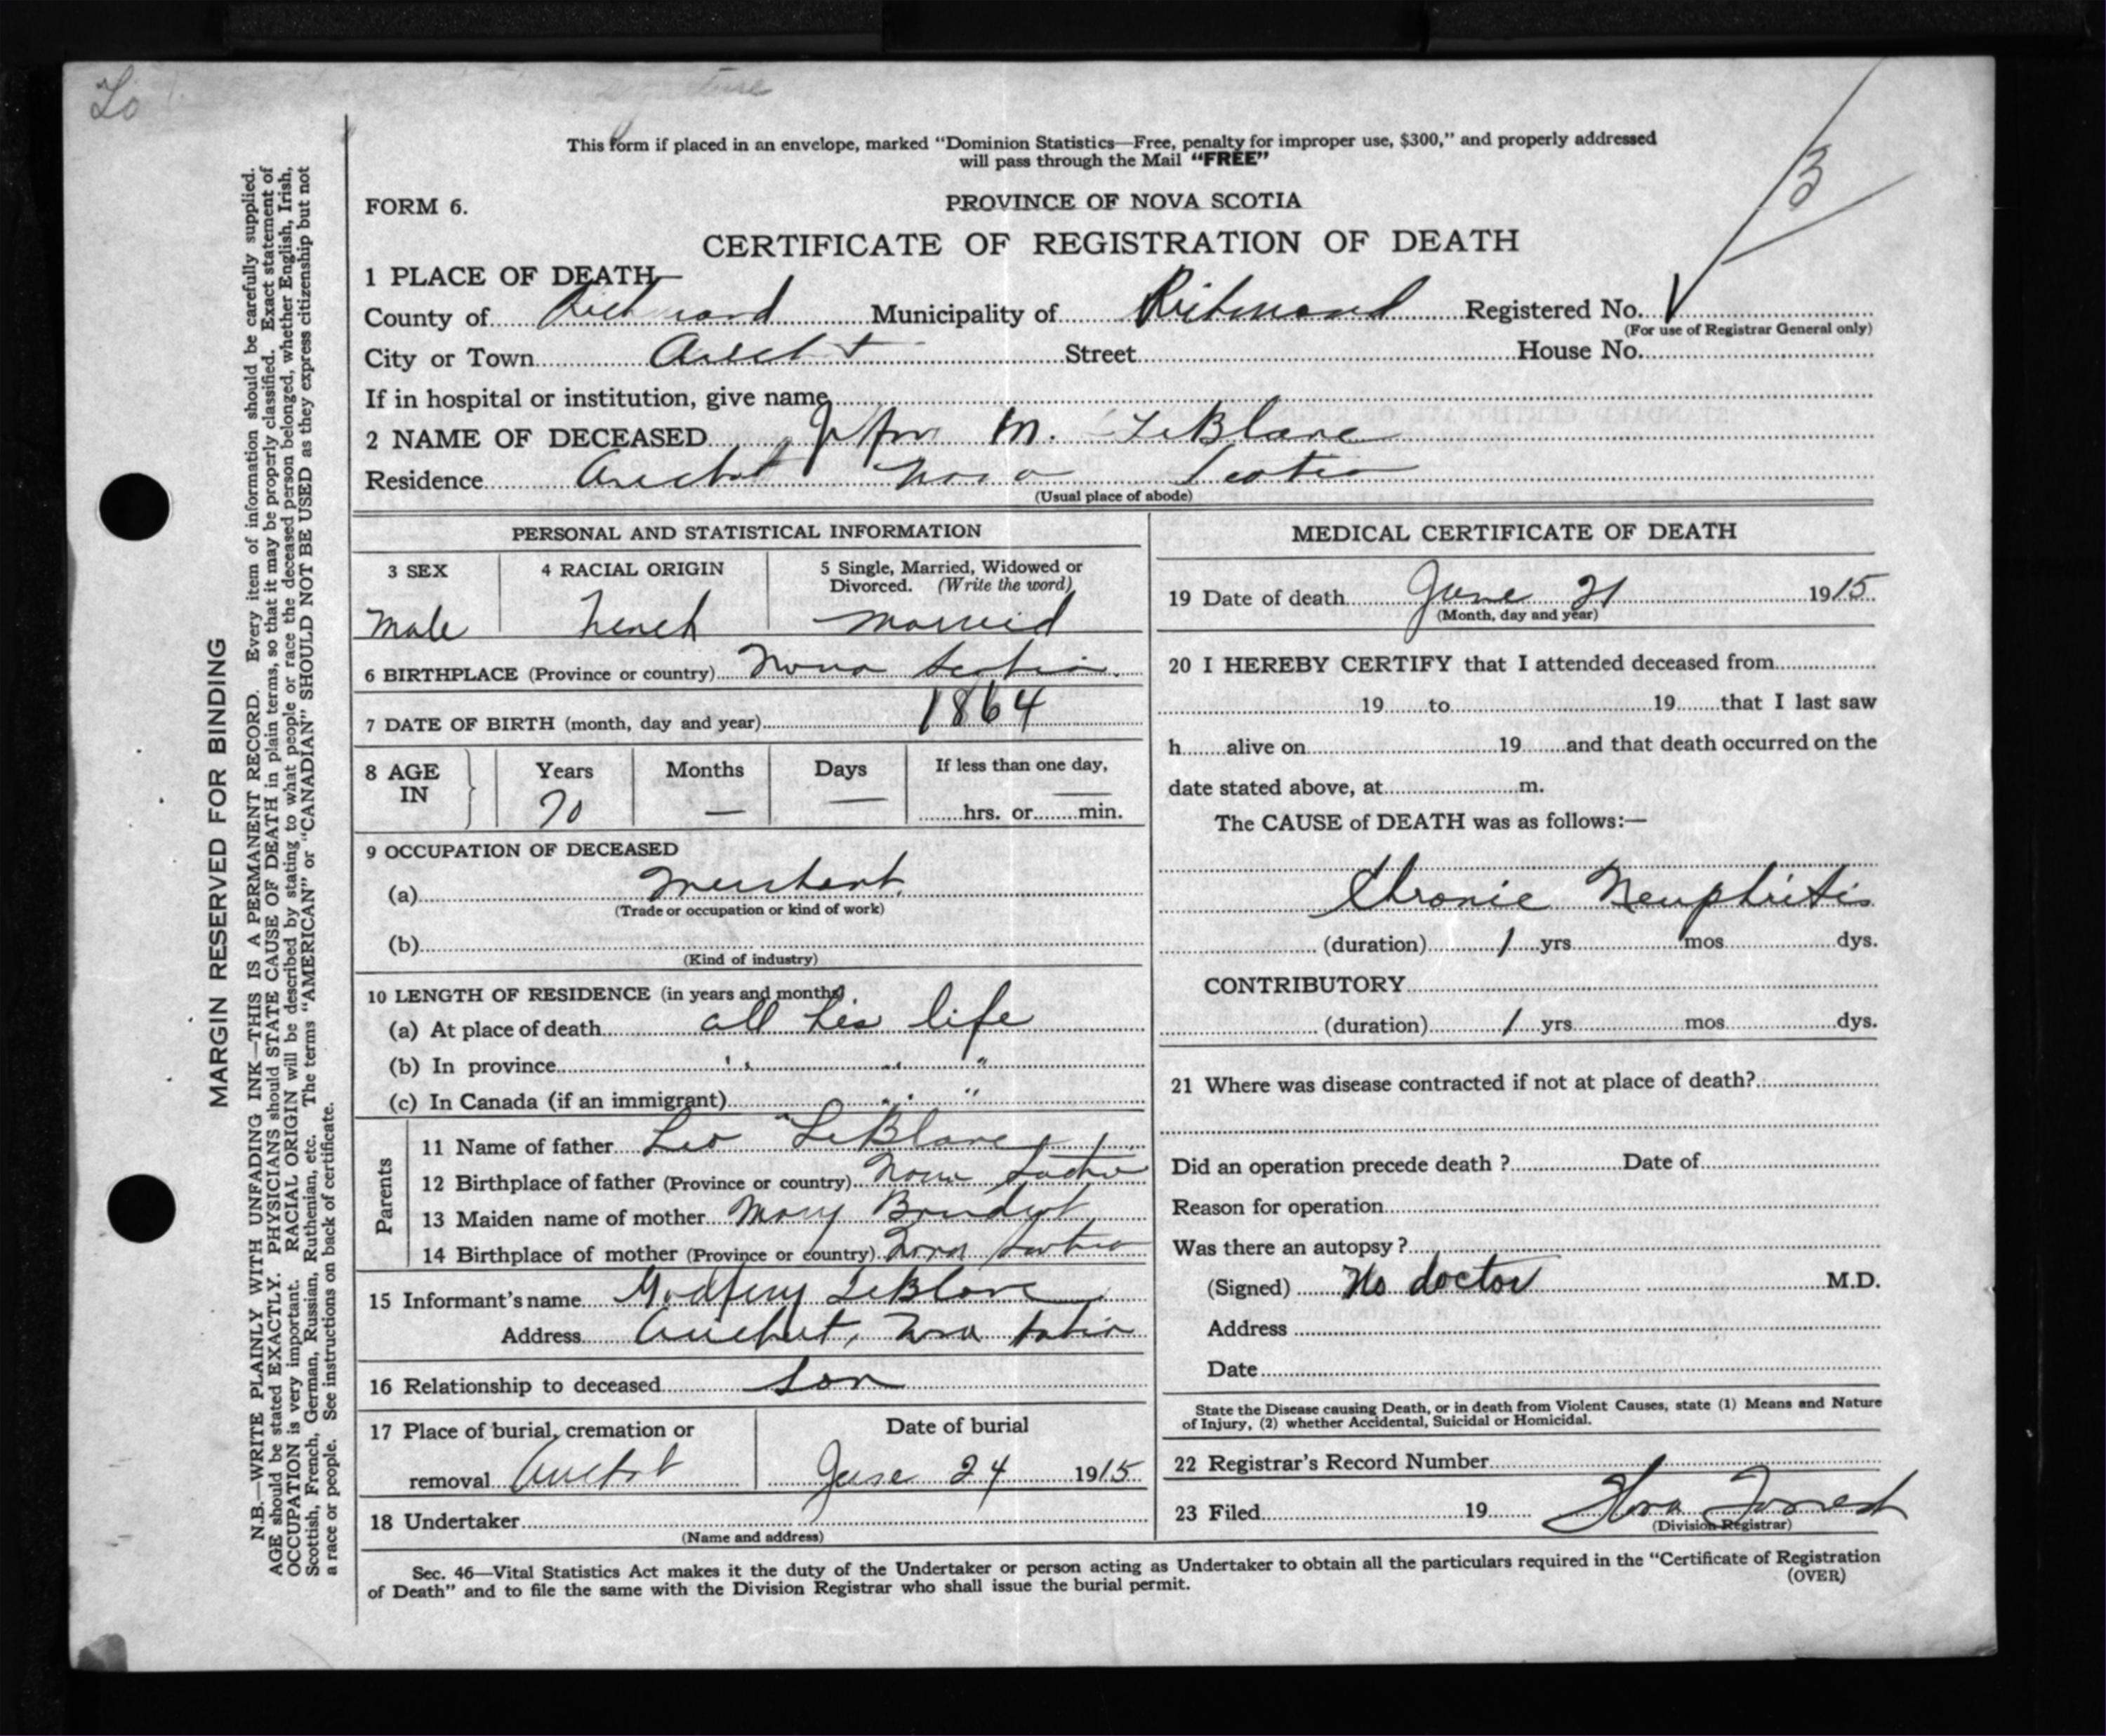 Lo
This form if placed in an envelope, marked “Dominion Statistics—Free, penalty for improper use, $300,” and properly addressed
will pass through the Mail “FREE”
3
FORM 6.
PROVINCE OF NOVA SCOTIA
CERTIFICATE OF REGISTRATION OF DEATH
1 PLACE OF DEATH—
County of Richmond Municipality of Richmond Registered No.
(For use of Registrar General only)
City or Town Arichat Street House No.
If in hospital or institution, give name
2 NAME OF DECEASED John M. LeBlanc
Residence Arichat Nova Scotia
(Usual place of abode)
PERSONAL AND STATISTICAL INFORMATION
3 SEX 4 RACIAL ORIGIN 5 Single, Married, Widowed or
Divorced. (Write the word)
Male French Married
6 BIRTHPLACE (Province or country) Nova Scotia.
7 DATE OF BIRTH (month, day and year) 1864
8 AGE IN Years Months Days If less than one day,
70 — — — hrs. or min.
9 OCCUPATION OF DECEASED
(a) Merchant.
(Trade or occupation or kind of work)
(b)
(Kind of industry)
10 LENGTH OF RESIDENCE (in years and months)
(a) At place of death all his life
(b) In province " " "
(c) In Canada (if an immigrant) " " "
Parents
11 Name of father Leo LeBlanc
12 Birthplace of father (Province or country) Nova Scotia
13 Maiden name of mother Mary Boudrot
14 Birthplace of mother (Province or country) Nova Scotia
15 Informant's name Godfrey LeBlanc
Address Arichat, Nova Scotia
16 Relationship to deceased Son
17 Place of burial, cremation or Date of burial
removal Arichat June 24 1915
18 Undertaker
(Name and address)
MEDICAL CERTIFICATE OF DEATH
19 Date of death June 21 1915
(Month, day and year)
20 I HEREBY CERTIFY that I attended deceased from
19 to 19 that I last saw
h alive on 19 and that death occurred on the
date stated above, at m.
The CAUSE of DEATH was as follows:—
Chronic Neuphritis
(duration) 1 yrs mos dys.
CONTRIBUTORY
(duration) 1 yrs mos dys.
21 Where was disease contracted if not at place of death?
Did an operation precede death ? Date of
Reason for operation
Was there an autopsy ?
(Signed) No doctor M.D.
Address
Date
State the Disease causing Death, or in death from Violent Causes, state (1) Means and Nature
of Injury, (2) whether Accidental, Suicidal or Homicidal.
22 Registrar's Record Number
23 Filed 19 Flora Forrest
(Division Registrar)
Sec. 46—Vital Statistics Act makes it the duty of the Undertaker or person acting as Undertaker to obtain all the particulars required in the “Certificate of Registration
of Death” and to file the same with the Division Registrar who shall issue the burial permit.
(OVER)
MARGIN RESERVED FOR BINDING
N.B.—WRITE PLAINLY WITH UNFADING INK—THIS IS A PERMANENT RECORD. Every item of information should be carefully supplied.
AGE should be stated EXACTLY. PHYSICIANS should STATE CAUSE OF DEATH in plain terms, so that it may be properly classified. Exact statement of
OCCUPATION is very important. RACIAL ORIGIN will be described by stating to what people or race the deceased person belonged, whether English, Irish,
Scottish, French, German, Russian, Ruthenian, etc. The terms “AMERICAN” or “CANADIAN” SHOULD NOT BE USED as they express citizenship but not
a race or people. See instructions on back of certificate.